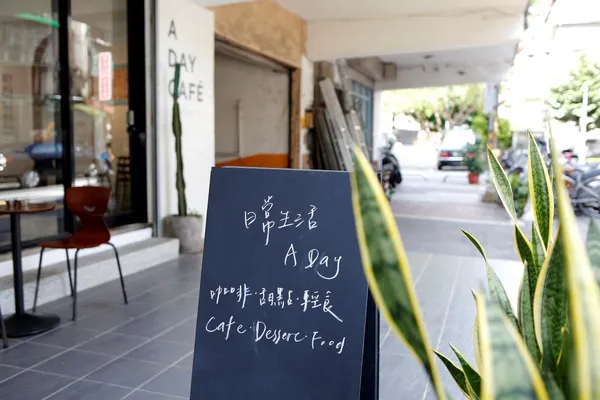 A
DAY
CAFÉ
日常生活
A Day
咖啡·甜點·輕食
Cafe·Dessert·Food